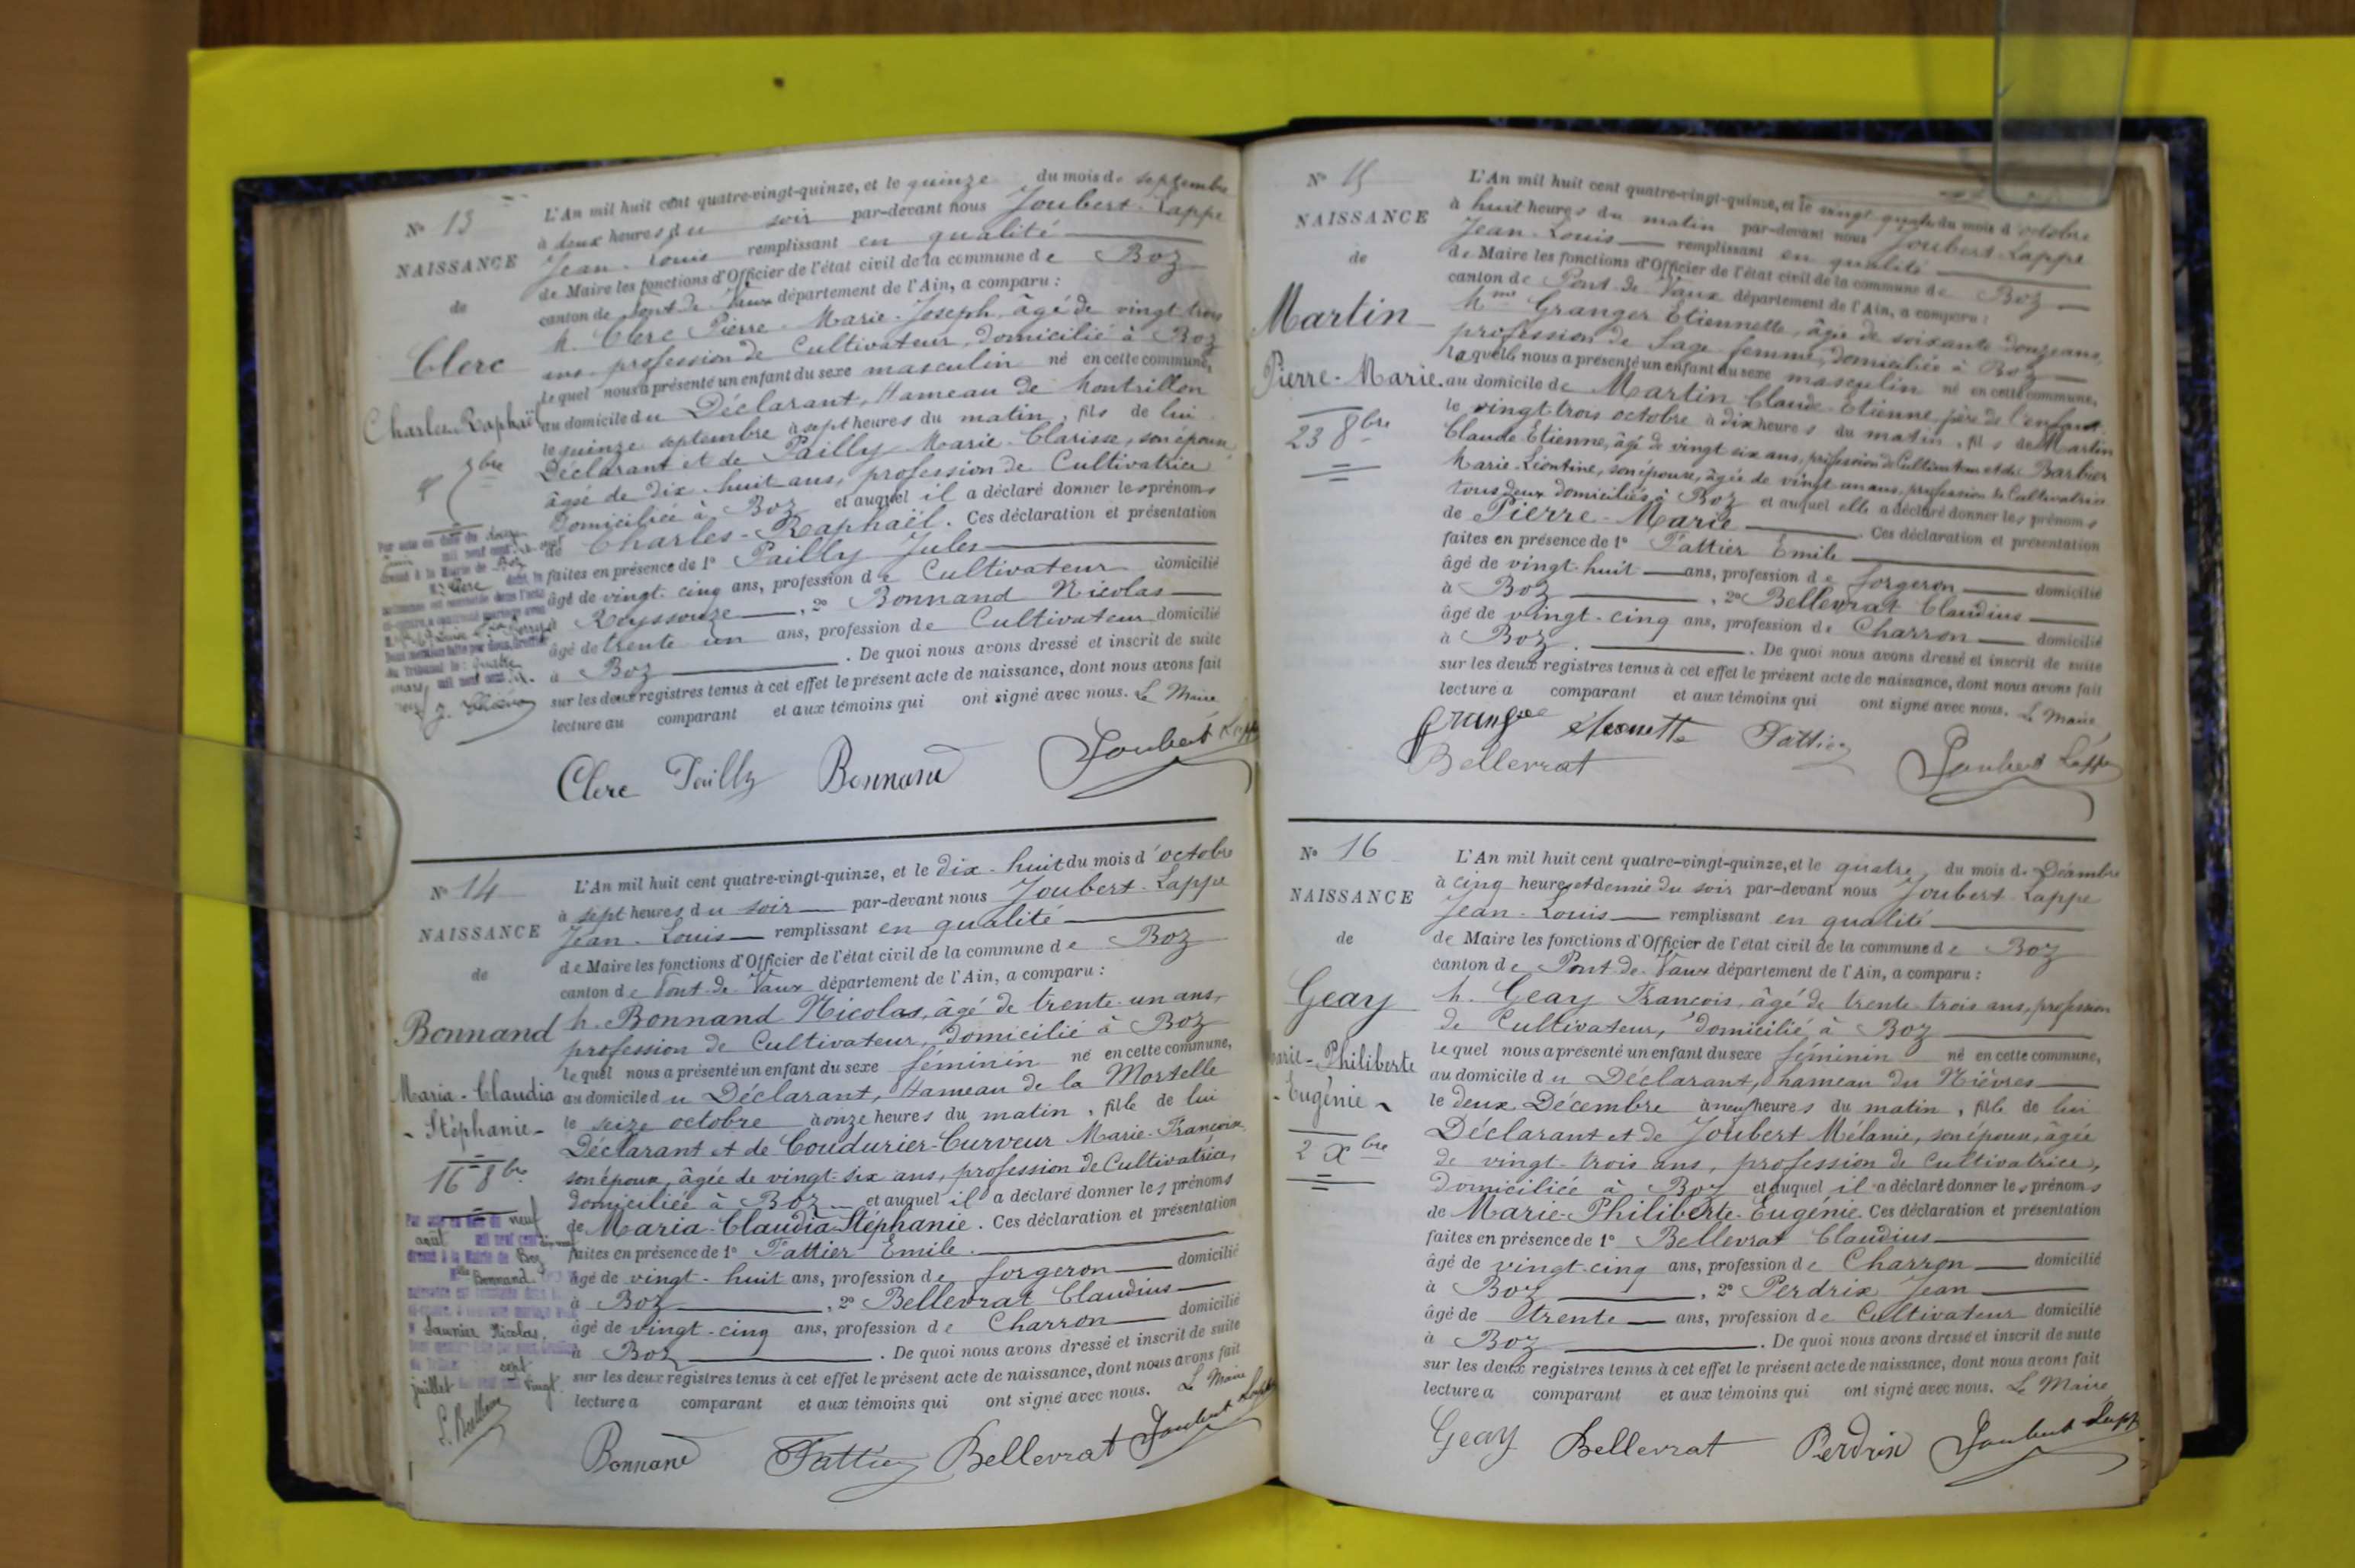 N° 13
NAISSANCE
de
Clerc
Charles-Raphaël
L'An mil huit cent quatre-vingt-quinze, et le quinze du mois de septembre
à deux heures du soir par-devant nous Joubert-Lappe
Jean-Louis remplissant en qualité
de Maire les fonctions d'Officier de l'état civil de la commune de Boz
canton de Pont-de-Vaux département de l'Ain, a comparu :
M. Clerc Pierre-Marie-Joseph, âgé de vingt trois
ans, profession de Cultivateur, domicilié à Boz
lequel nous a présenté un enfant du sexe masculin né en cette commune,
au domicile du Déclarant, Hameau de Montrillon
le quinze septembre à sept heures du matin, fils de lui
Déclarant et de Pailly Marie-Clarisse, son épouse,
âgée de dix-huit ans, profession de Cultivatrice
domiciliée à Boz et auquel il a déclaré donner les prénoms
de Charles-Raphaël. Ces déclaration et présentation
faites en présence de 1° Pailly Jules
âgé de vingt-cinq ans, profession de Cultivateur domicilié
à Reyssouze, 2° Bonnand Nicolas
âgé de trente un ans, profession de Cultivateur domicilié
à Boz. De quoi nous avons dressé et inscrit de suite
sur les deux registres tenus à cet effet le présent acte de naissance, dont nous avons fait
lecture au comparant et aux témoins qui ont signé avec nous. Le Maire
Clerc Pailly Bonnand Joubert Lappe
N° 14
NAISSANCE
de
Bonnand
Maria-Claudia
-Stéphanie-
16 8bre
Par acte en date du neuf
août mil neuf cent dix-neuf
dressé à la Mairie de Boz
Mlle Bonnand
M Saunier Nicolas.
sept
juillet vingt.
L'An mil huit cent quatre-vingt-quinze, et le dix-huit du mois d'octobre
à sept heures du soir par-devant nous Joubert-Lappe
Jean-Louis remplissant en qualité
de Maire les fonctions d'Officier de l'état civil de la commune de Boz
canton de Pont-de-Vaux département de l'Ain, a comparu :
M. Bonnand Nicolas, âgé de trente-un ans,
profession de Cultivateur, domicilié à Boz
lequel nous a présenté un enfant du sexe féminin né en cette commune,
au domicile du Déclarant, Hameau de la Mortelle
le seize octobre à onze heures du matin, fille de lui
Déclarant et de Coudurier-Curveur Marie-Françoise
son épouse, âgée de vingt-six ans, profession de Cultivatrice,
domiciliée à Boz et auquel il a déclaré donner les prénoms
de Maria-Claudia-Stéphanie. Ces déclaration et présentation
faites en présence de 1° Fattier Emile
âgé de vingt-huit ans, profession de forgeron domicilié
à Boz, 2° Bellevrat Claudius
âgé de vingt-cinq ans, profession de Charron domicilié
à Boz. De quoi nous avons dressé et inscrit de suite
sur les deux registres tenus à cet effet le présent acte de naissance, dont nous avons fait
lecture a comparant et aux témoins qui ont signé avec nous. Le Maire
Bonnand Fattier Bellevrat Joubert Lappe
N° 15
NAISSANCE
de
Martin
Pierre-Marie.
23 8bre
L'An mil huit cent quatre-vingt-quinze, et le vingt quatre du mois d'octobre
à huit heures du matin par-devant nous Joubert-Lappe
Jean-Louis remplissant en qualité
de Maire les fonctions d'Officier de l'état civil de la commune de Boz
canton de Pont-de-Vaux département de l'Ain, a comparu :
Mme Granger Etiennette, âgée de soixante douze ans,
profession de Sage-femme, domiciliée à Boz
laquelle nous a présenté un enfant du sexe masculin né en cette commune,
au domicile de Martin Claude-Etienne, père de l'enfant
le vingt-trois octobre à dix heures du matin, fils de Martin
Claude-Etienne, âgé de vingt six ans, profession de Cultivateur et de Barbier
Marie-Léontine, son épouse, âgée de vingt un ans, profession de Cultivatrice
tous deux domiciliés à Boz et auquel elle a déclaré donner les prénoms
de Pierre-Marie. Ces déclaration et présentation
faites en présence de 1° Fattier Emile
âgé de vingt-huit ans, profession de forgeron domicilié
à Boz, 2° Bellevrat Claudius
âgé de vingt-cinq ans, profession de Charron domicilié
à Boz. De quoi nous avons dressé et inscrit de suite
sur les deux registres tenus à cet effet le présent acte de naissance, dont nous avons fait
lecture a comparant et aux témoins qui ont signé avec nous. Le Maire
Fattier
Bellevrat Joubert Lappe
N° 16
NAISSANCE
de
Geay
Marie-Philiberte
-Eugénie-
2 Xbre
L'An mil huit cent quatre-vingt-quinze, et le quatre du mois de Décembre
à cinq heures et demie du soir par-devant nous Joubert-Lappe
Jean-Louis remplissant en qualité
de Maire les fonctions d'Officier de l'état civil de la commune de Boz
canton de Pont-de-Vaux département de l'Ain, a comparu :
M. Geay François, âgé de trente-trois ans, profession
de Cultivateur, domicilié à Boz
lequel nous a présenté un enfant du sexe féminin né en cette commune,
au domicile du Déclarant, hameau du Nièvres
le deux Décembre à neuf heures du matin, fille de lui
Déclarant et de Joubert Mélanie, son épouse, âgée
de vingt-trois ans, profession de Cultivatrice,
domiciliée à Boz et auquel il a déclaré donner les prénoms
de Marie-Philiberte-Eugénie. Ces déclaration et présentation
faites en présence de 1° Bellevrat Claudius
âgé de vingt-cinq ans, profession de Charron domicilié
à Boz, 2° Perdrix Jean
âgé de trente ans, profession de Cultivateur domicilié
à Boz. De quoi nous avons dressé et inscrit de suite
sur les deux registres tenus à cet effet le présent acte de naissance, dont nous avons fait
lecture a comparant et aux témoins qui ont signé avec nous. Le Maire
Geay Bellevrat Perdrix Joubert Lapp